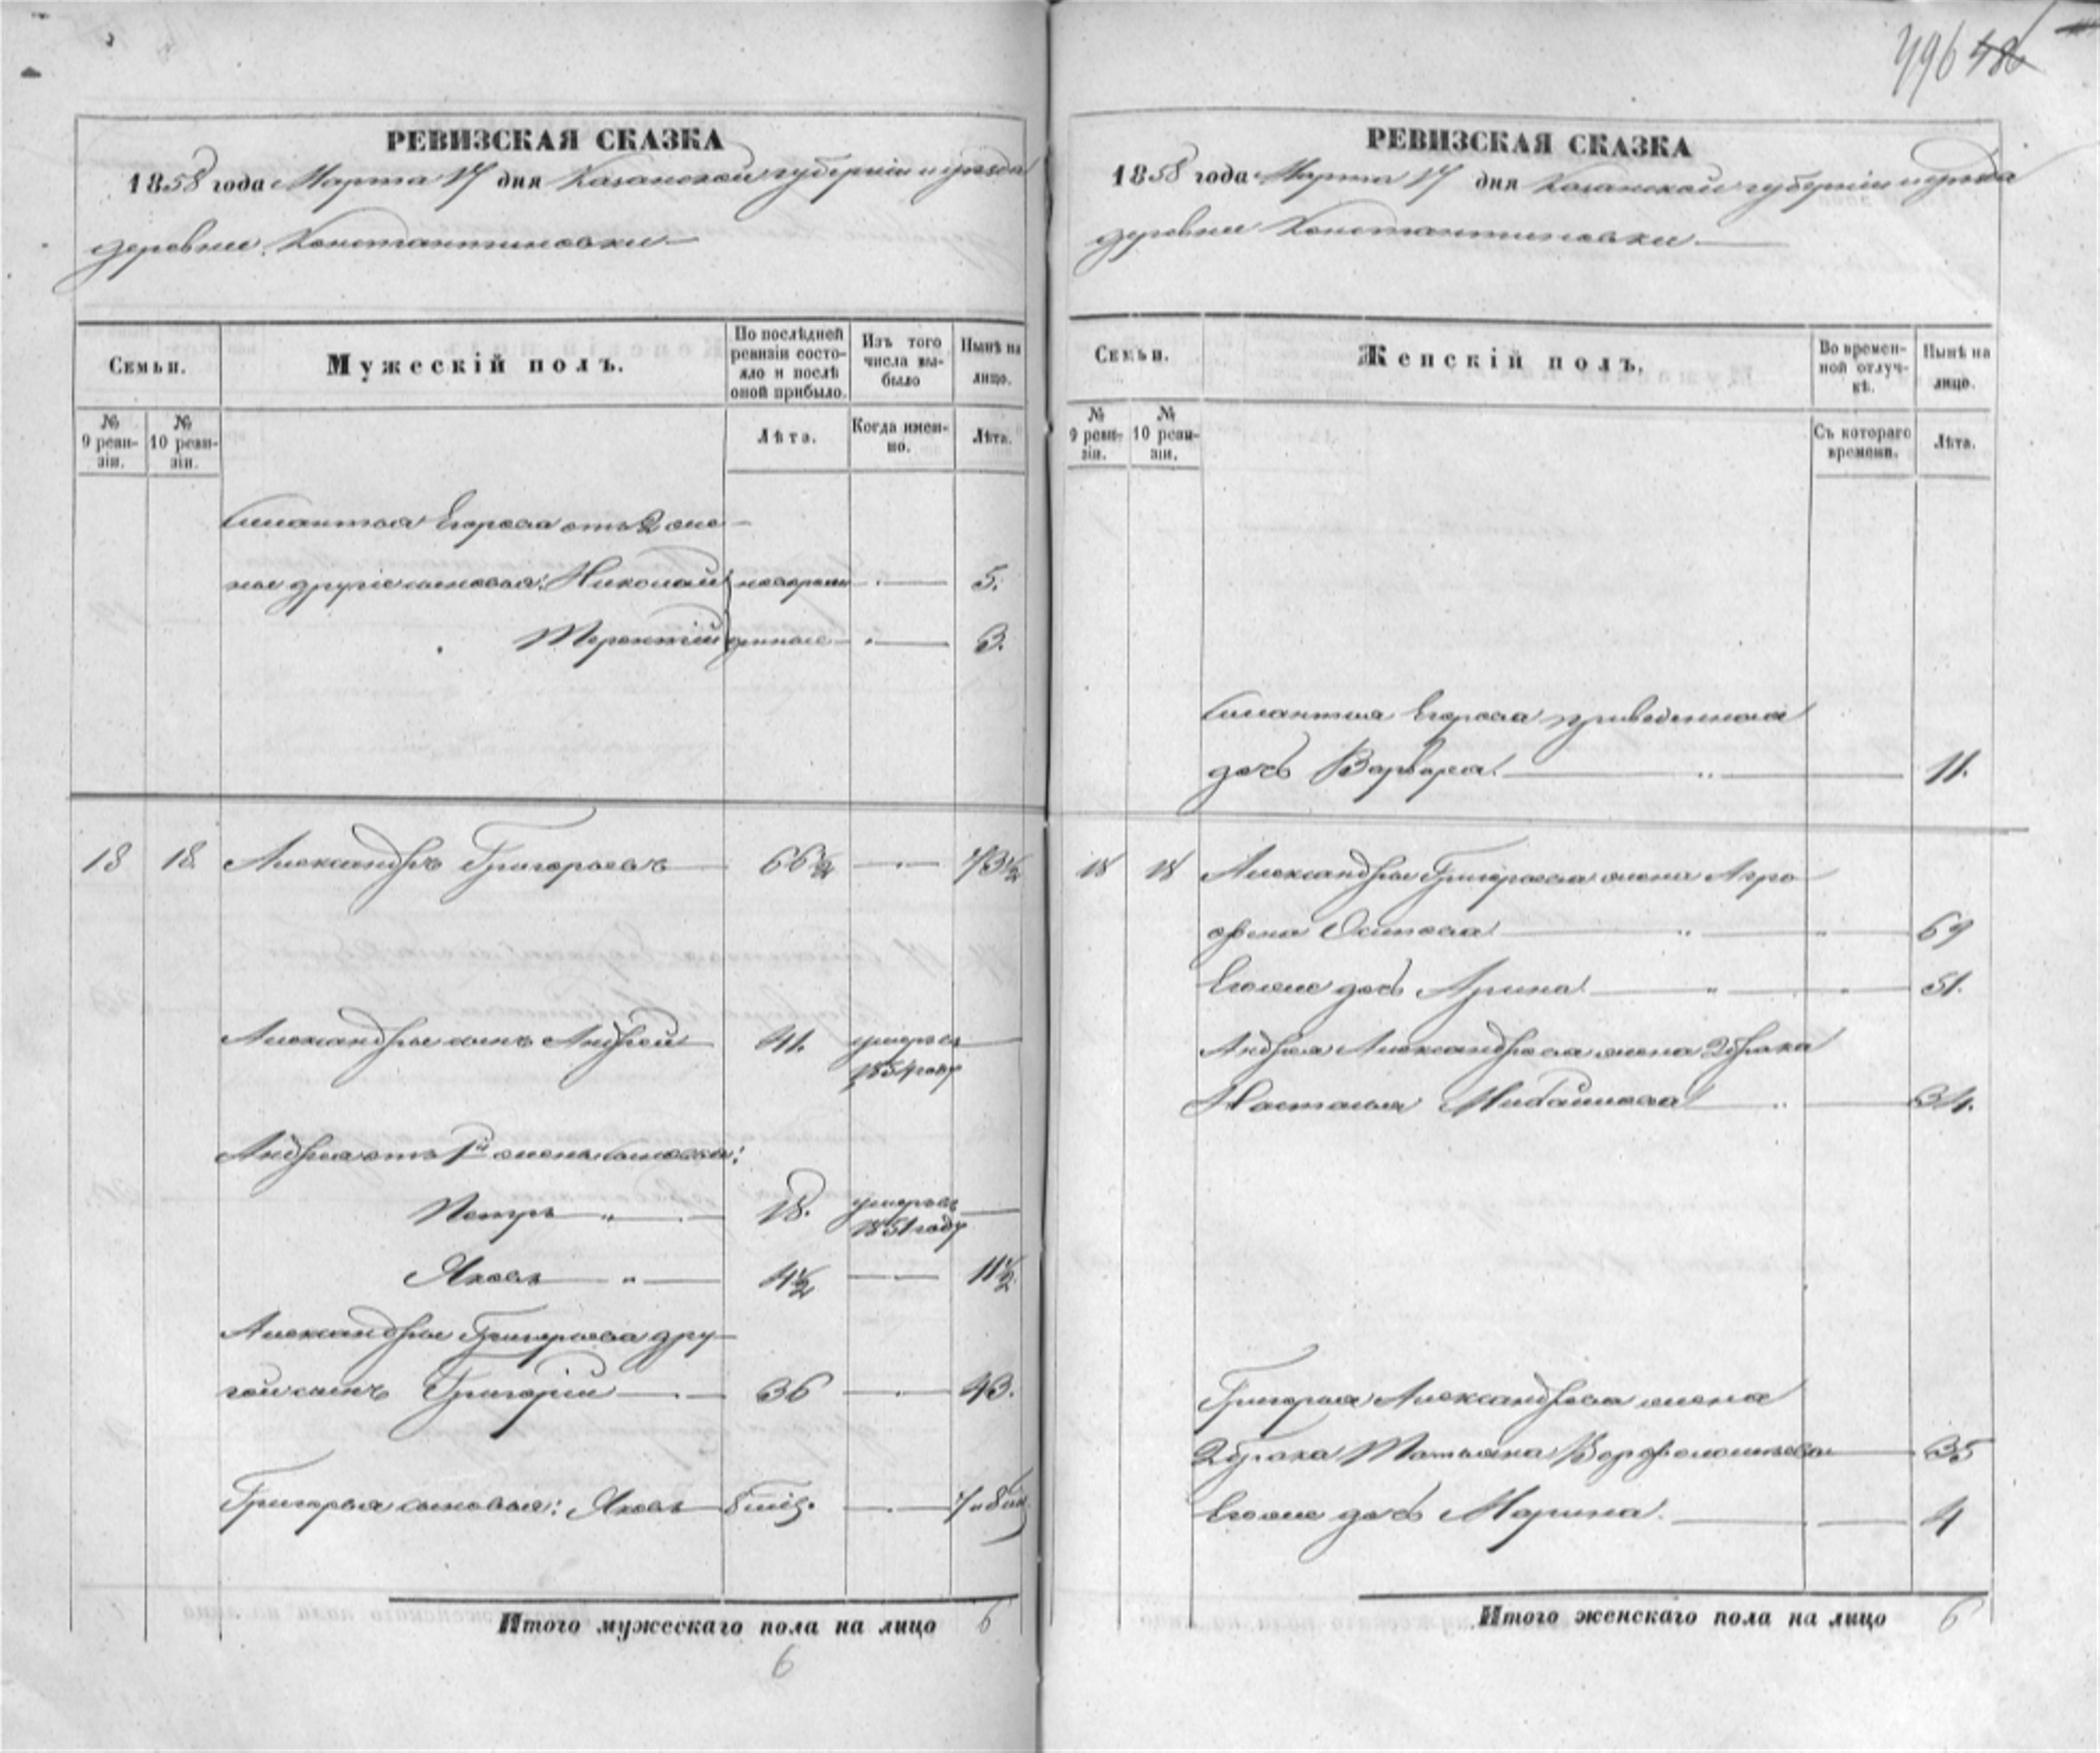 496 486
РЕВИЗСКАЯ СКАЗКА
1858 года Марта 17 дня Казанской губерніи и уѣзда
деревни Константиновки
Семьи.
Мужескій полъ.
По послѣдней ревизіи состояло и послѣ оной прибыло.
Изъ того числа выбыло
Нынѣ на лицо.
№ 9 ревизіи.
№ 10 ревизіи.
Лѣта.
Когда именно.
Лѣта.
Егорова отъ 2 же
ны другіе сыновья: Николай новорож 5.
Терентій денные 3.
18 18. Александръ Григорьевъ 66½ 73½
Александры сынъ Андрей 41. умеръ въ
1854 году
Андрея отъ 1й жены сыновья:
Петръ 18. умеръ въ
1851 году
Яковъ 4½ 11½
Александры Григорьева дру
гой сынъ Григорій 36 43.
Григорья сыновья: Яковъ 8 мѣс. 7 и 8 мѣс
Итого мужескаго пола на лицо 6
6
РЕВИЗСКАЯ СКАЗКА
1858 года Марта 17 дня Казанской губерніи и уѣзда
деревни Константиновки
Семьи.
Женскій полъ.
Во временной отлучкѣ.
Нынѣ на лицо.
№ 9 ревизіи.
№ 10 ревизіи.
Съ котораго времени.
Лѣта.
Егорова приведенная
дочь Варвара 11.
18 18 Александры Григорьева жена Агро
фена Осипова 69
Егоже дочь Арина 51.
Андрея Александрова жена 2 брака
Настасья 34.
Григорья Александрова жена
2 брака Татьяна Варфоломеева 35
Егоже дочь Марина 4
Итого женскаго пола на лицо 6